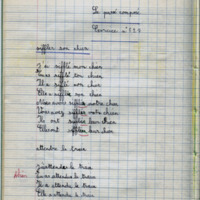 Le passé composé
Exercice n°129
siffler son chien
J'ai sifflé mon chien
tu as sifflé ton chien
Il a sifflé son chien
Elle a sifflé son chien
Nous avons sifflé notre chien
Vous avez sifflé votre chien
Ils ont sifflé leur chien
Elles ont sifflé leur chien
attendre le train
J'ai attendu le train
Tu as attendu le train
Il a attendu le train
Elle a attendu le train